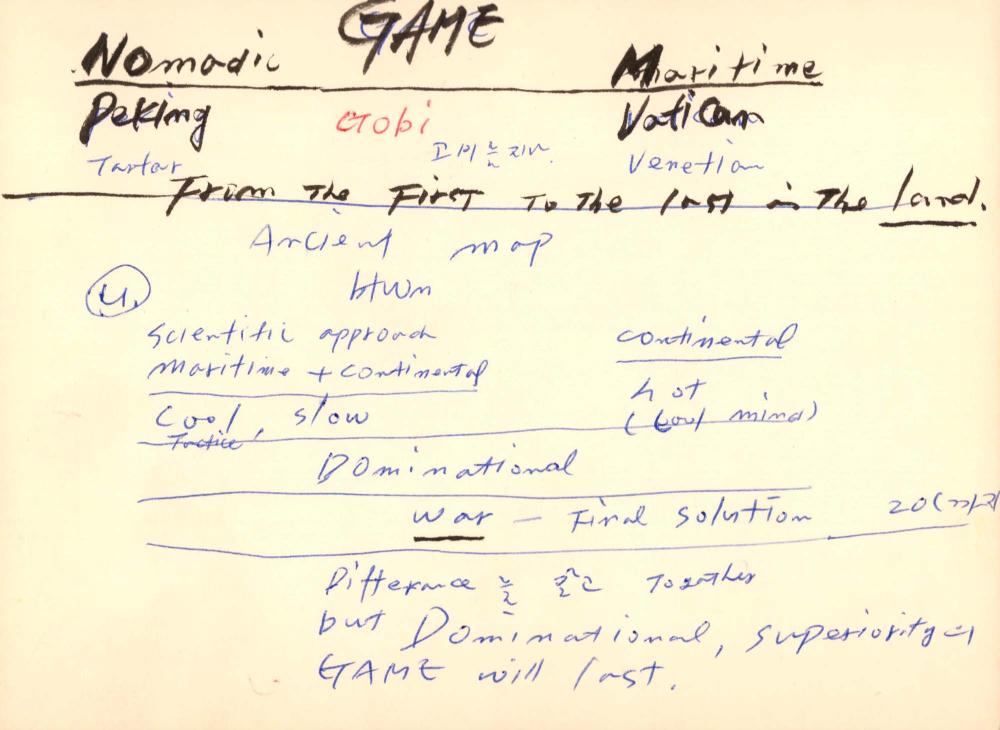 GAME
Nomadic Maritime
Peking Gobi Vatican
Tartar 고비는 지나 Venetian
From The First To The last in The land.
Ancient map
btwn
U.
Scientific approach continental
Maritime + continental
hot
Cool, slow (cool mind)
Tactice
Dominational
war - Final solution 20C까지
Difference를 Together
but Dominational, superiority의
GAME will last.